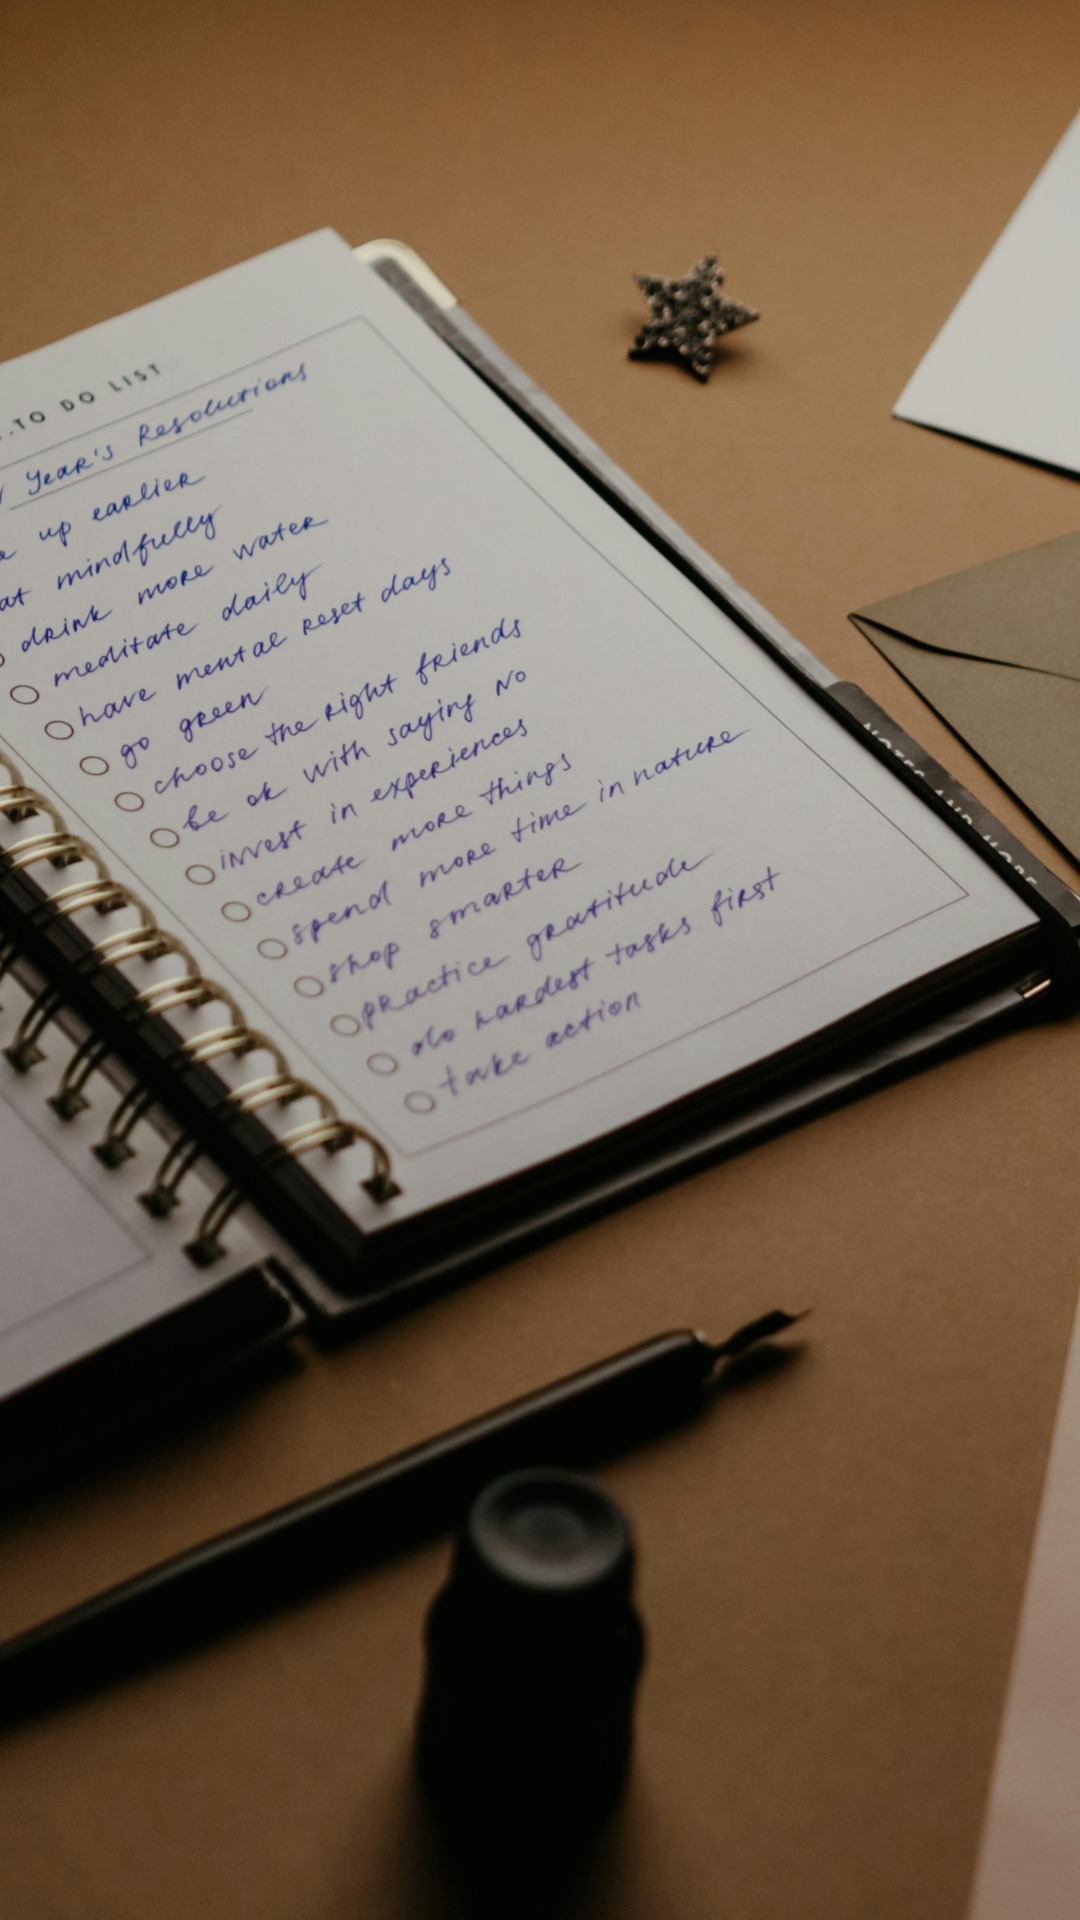 TO DO LIST
Year's Resolutions
up earlier
mindfully
drink more water
meditate daily
have mental reset days
go green
choose the right friends
be ok with saying no
invest in experiences
create more things
spend more time in nature
shop smarter
practice gratitude
do hardest tasks first
take action
NOTES AND MORE